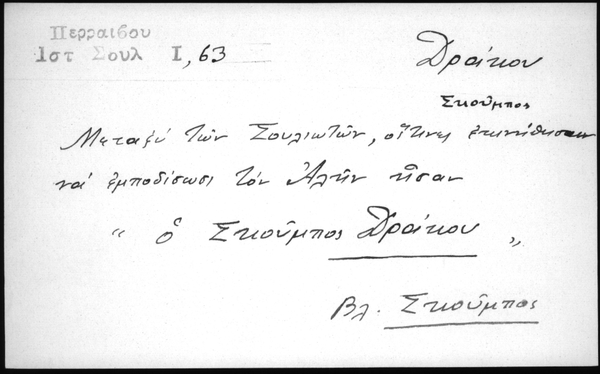 Περραιβου
Ιστ Σουλ Ι, 63
Δράκου
Σκοῦμπος
Μεταξύ τῶν Σουλιωτῶν, οἵτινες ἐκινήθησαν
νά ἐμποδίσωσι τόν Ἀλῆν ἦσαν
“ ὁ Σκοῦμπος Δράκου „
Βλ. Σκοῦμπος